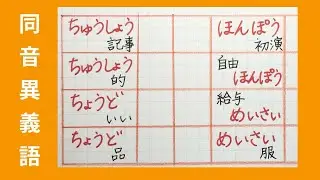 同音異義語
ほんぽう
初演
自由
ほんぽう
給与
めいさい
めいさい
服
ちゅうしょう
記事
ちゅうしょう
的
ちょうど
いい
ちょうど
品